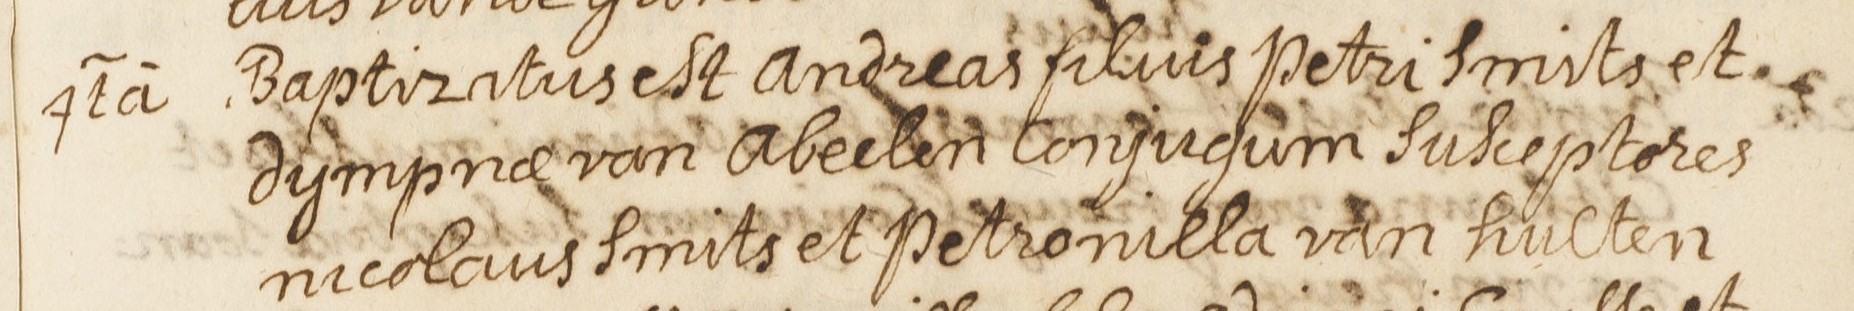 4ta Baptizatus est Andreas filuis Petri Smits et
dympnæ van Abeelen Conjugum Susceptores
nicolaus Smits et Petronilla van hulten